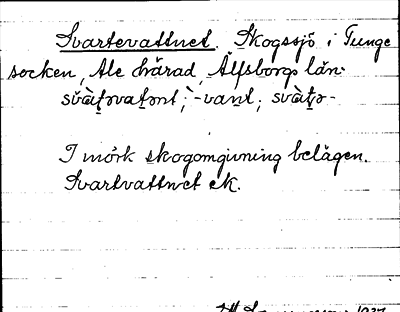 Svartevattnet. Skogssjö i Tunge
socken, Ale härad, Älfsborgs län.
svàt̯əvatənt; -vant; svàt̯ə-
I mörk skogomgivning belägen.
Svartvattnet ek.